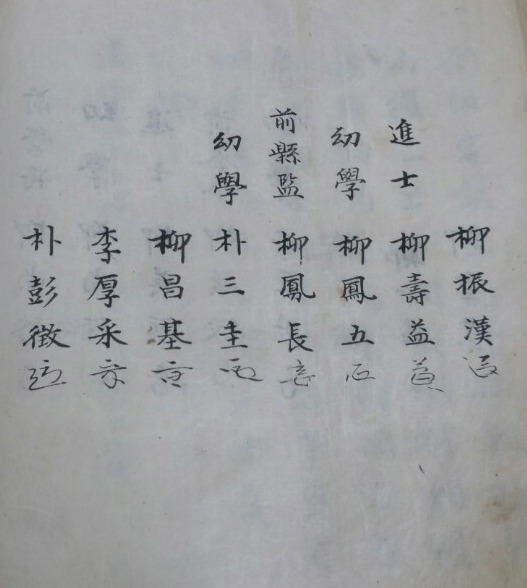 柳振漢
進士 柳壽益
幼學 柳鳳五
前縣監 柳鳳長
幼學 朴三圭
柳昌基
李厚采
朴彭徵